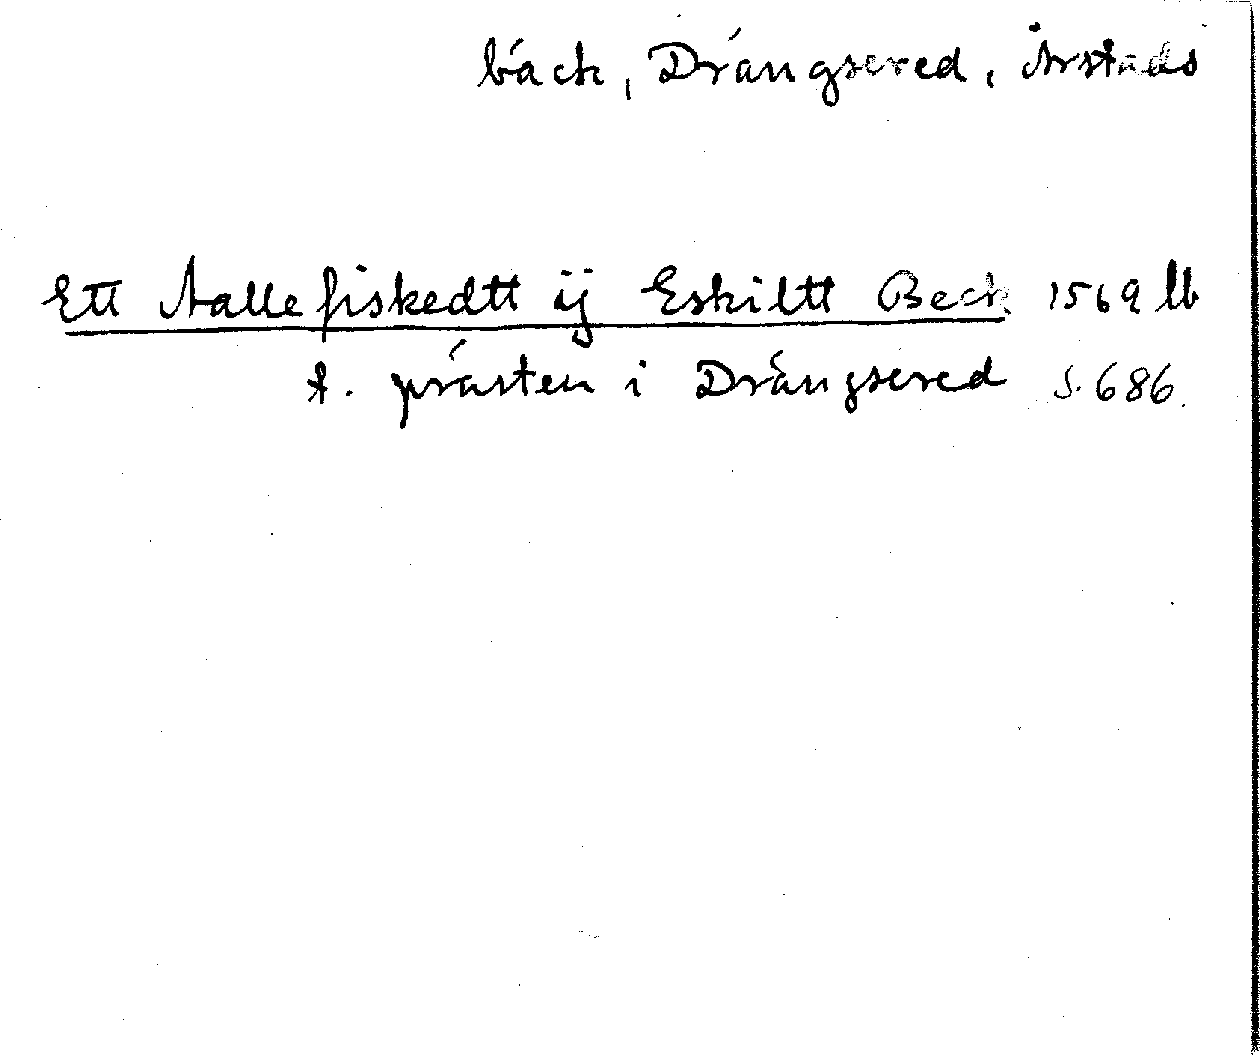 bäck, Drängsered, Årstads
Ett Aallefiskedtt ij Eskiltt Beck 1569 lb
t. prästen i Drängsered s. 686.